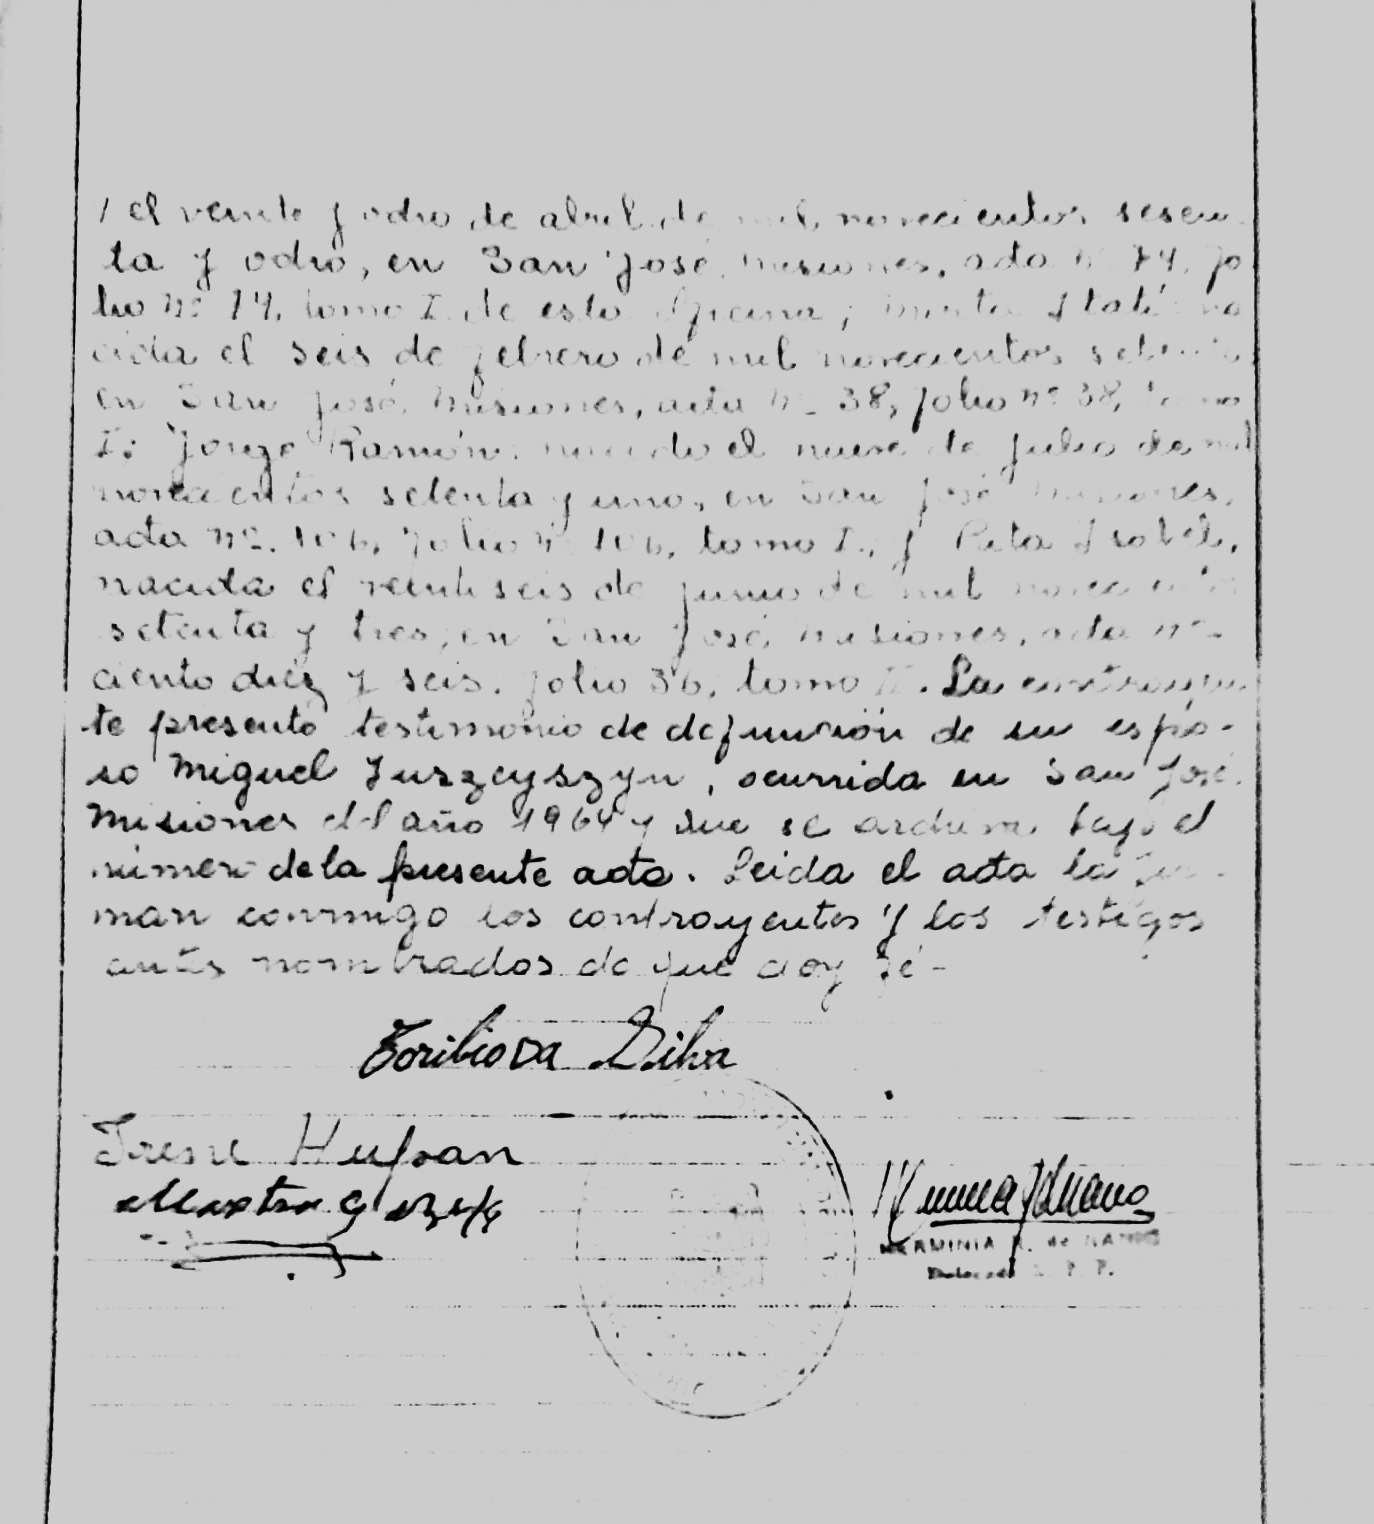 / el veinte y ocho de abril de mil novecientos sesen-
ta y ocho, en San José, Misiones, acta Nº 74, fo
lio Nº 74, tomo I de esta Oficina; Mirta Itatí na
cida el seis de febrero de mil novecientos setenta
en San José, Misiones, acta Nº 38, folio nº 38, tomo
I; Jorge Ramón, nacido el nueve de julio de mil
novecientos setenta y uno, en San José Misiones,
acta Nº 106, folio Nº 106, tomo I, y Rita Isabel,
nacida el veintiseis de junio de mil novecientos
setenta y tres, en San José, Misiones, acta Nº
ciento diez y seis, folio 36, tomo II. La contrayen
te presento testimonio de defunción de su espo-
so Miguel, ocurrida en San José
Misiones del año 1964 y que se archiva bajo el
número de la presente acta. Leida el acta la fir-
man conmigo los contrayentes y los testigos
antes nombrados de que doy fé-
Toribio Da Silva
Irene
HERMINIA R. de